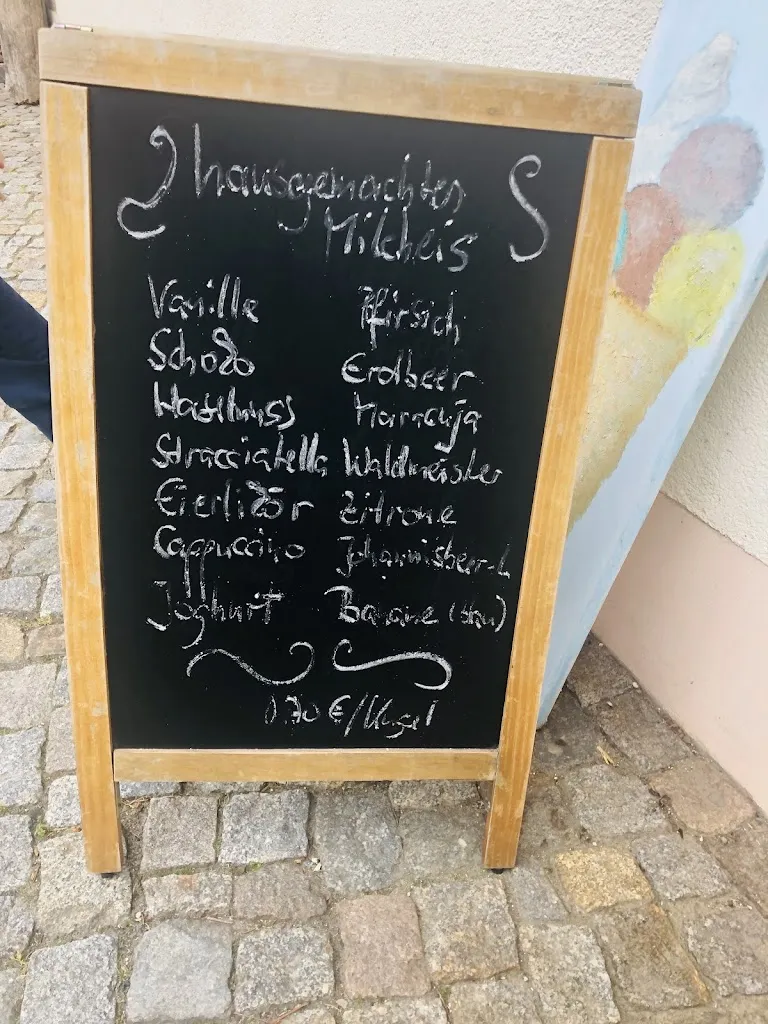 hausgemachtes
Milcheis
Vanille
Schoko
Haselnuss
Stracciatella
Eierlikör
Cappuccino
Joghurt
Pfirsich
Erdbeer
Maracuja
Waldmeister
Zitrone
Johannisbeer-
Banane
€/Kugel